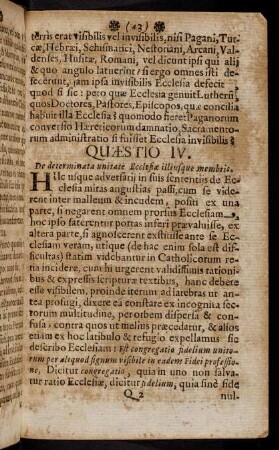 (123)
terris erat visibilis vel invisibilis, nisi Pagani, Tur-
cæ, Hebræi, Schismatici, Nestoriani, Arcani, Val-
denses, Husitæ, Romani, vel dicunt ipsi qui alij
& quo angulo latuerint? si ergo omnes isti de-
fecerunt, jam ipsa invisibilis Ecclesia defecit
quod si sic: pero quæ Ecclesia genuit Lutherũ,
quos Doctores, Pastores, Episcopos, quæ concilia
habuit illa Ecclesia? quomodo fieret Paganorum
conversio Hæreticorum damnatio, Sacramento-
rum administratio si fuisset Ecclesia invisibilis?
QUÆSTIO IV.
De determinata unitate Ecclesiæ illiusque membris.
HUcusque adversarij in suis sententijs de Ec-
clesia miras angustias passi, cum se vide-
rent inter malleum & incudem, positi ex una
parte, si negarent omnem prorsus Ecclesiam,
hoc ipso faterentur portas inferi prævaluisse, ex
altera parte, si agnoscerent exstitisse ante se Ec-
clesiam veram, utique (de hac enim sola est dif-
ficultas) statim videbantur in Catholicorum re-
tia incidere, cum hi urgerent validissimis rationi-
bus & expressis scripturæ textibus, hanc debere
esse visibilem, proinde iterum ad latebras ut an-
tea profugi, dixere eã constare ex incognita se-
ctorum multitudine, per orbem dispersa & con-
fusa: contra quos ut melius præcedatur, & alios
etiam ex hoc latibulo & refugio expellamus sic
describo Ecclesiam: Est congregatio fidelium unito-
rum per aliquod signum visibile in eadem Fidei professio-
ne, Dicitur congregatio, quia in uno non salva-
tur ratio Ecclesiæ, dicitur fidelium, quia sine fide
Q 2 nul-